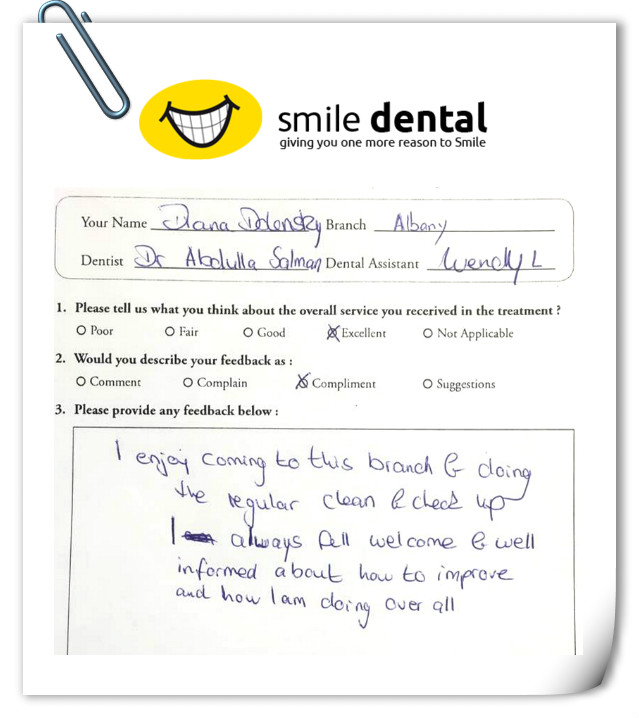 smile dental
giving you one more reason to Smile
Your Name Diana Dolensky Branch Albany
Dentist Dr Abdulla Salman Dental Assistant Wendy L
1. Please tell us what you think about the overall service you recerived in the treatment ?
Poor Fair Good Excellent Not Applicable
2. Would you describe your feedback as :
Comment Complain Compliment Suggestions
3. Please provide any feedback below :
I enjoy coming to this branch & doing
the regular clean & check up
I always fell welcome & well
informed about how to improve
and how I am doing over all